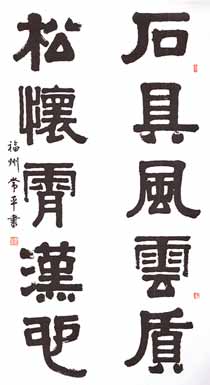 石具風雲盾
松懷霄漢心
福州常平書